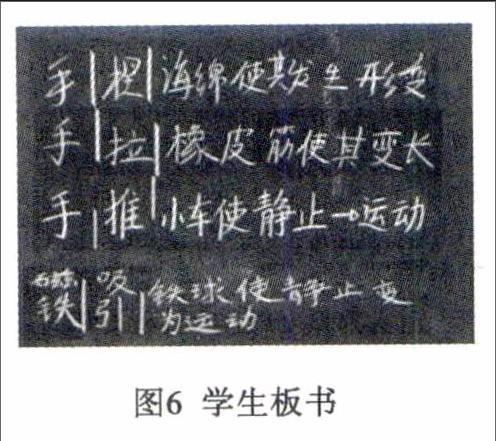 手|捏|海绵使其发生形变
手|拉|橡皮筋使其变长
手|推|小车使静止→运动
磁铁|吸引|铁球使静止变为运动
图6 学生板书